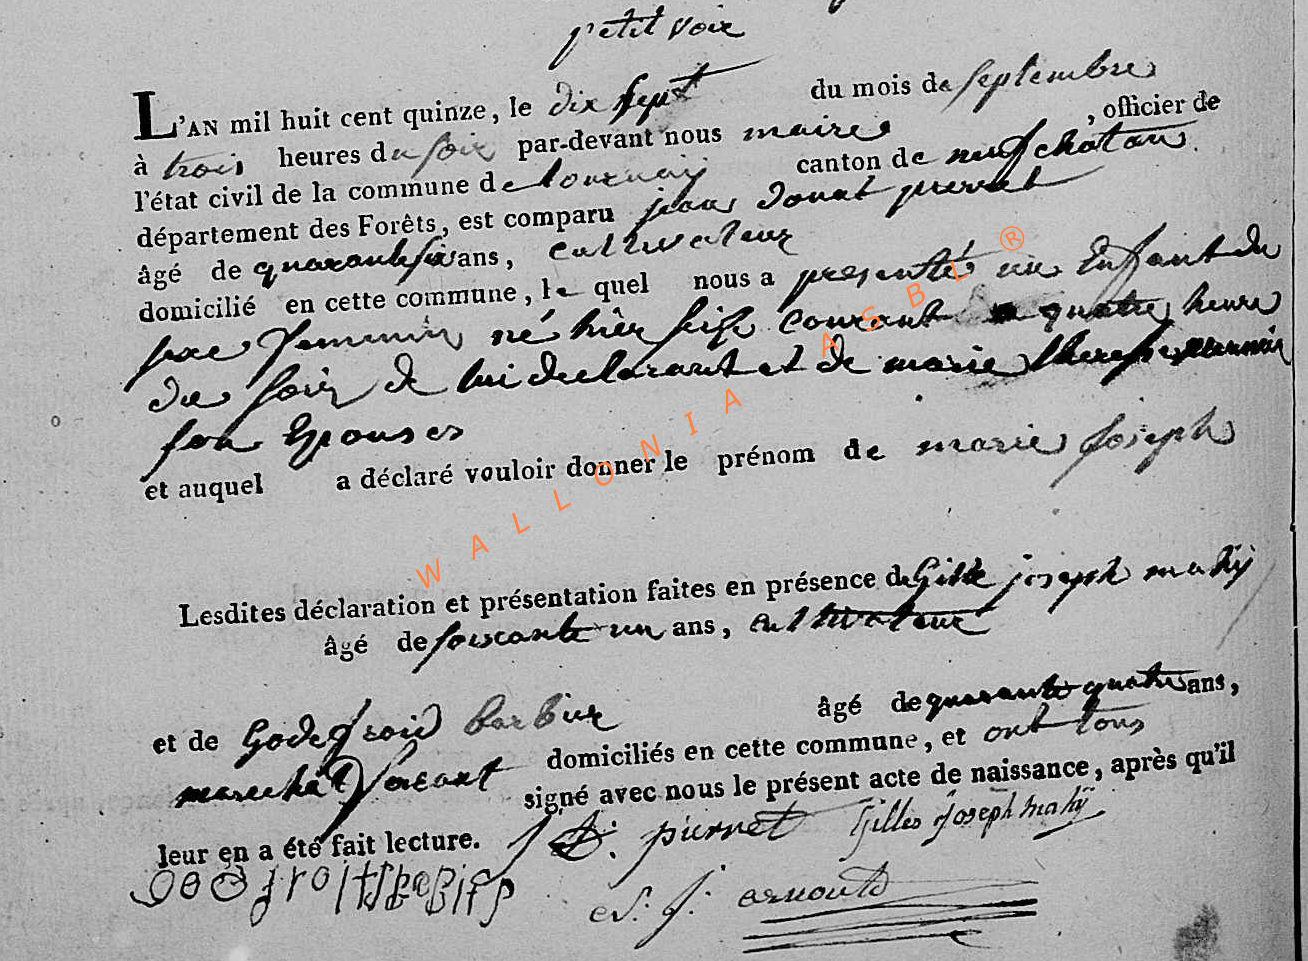 petit voir
L'AN mil huit cent quinze, le dix sept du mois de septembre
à trois heures du soir par-devant nous maire, officier de
l'état civil de la commune de tournay canton de neufchatau
département des Forêts, est comparu jean donat pierret
âgé de quarante six ans, cultivateur
domicilié en cette commune, le quel nous a presenté un Enfant du
sexe femmin né hier seise courant a quatre heure
du soir de lui declarant et de marie therese
son Epouses
et auquel a déclaré vouloir donner le prénom de marie Joseph
Lesdites déclaration et présentation faites en présence de Gille joseph mahy
âgé de soixcante un ans, cultivateur
et de Godefroid barbier âgé de quarante quatre ans,
marechal ferant domiciliés en cette commune, et ont tous
signé avec nous le présent acte de naissance, après qu'il
leur en a été fait lecture. J D: pierret Gilles Joseph Mahÿ
J: arnould
WALLONIA ASBL ®